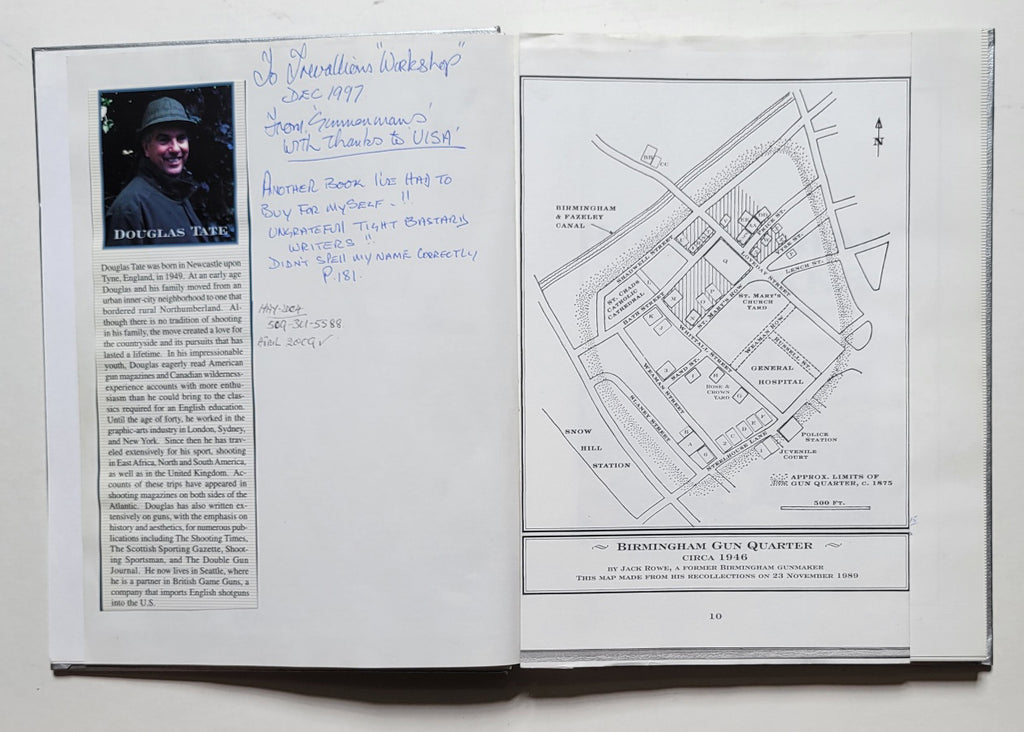 To Trevallions "Workshop"
DEC 1997
From 'Gunnerman's
With Thanks to 'VISA'
ANOTHER BOOK I'VE HAD TO
BUY FOR MYSELF - !!
UNGRATEFUL TIGHT BASTARD
WRITERS !!
DIDN'T SPELL MY NAME CORRECTLY
P. 181.
509-301-5588
APRIL
DOUGLAS TATE
Douglas Tate was born in Newcastle upon
Tyne, England, in 1949. At an early age
Douglas and his family moved from an
urban inner-city neighborhood to one that
bordered rural Northumberland. Al-
though there is no tradition of shooting
in his family, the move created a love for
the countryside and its pursuits that has
lasted a lifetime. In his impressionable
youth, Douglas eagerly read American
gun magazines and Canadian wilderness-
experience accounts with more enthu-
siasm than he could bring to the clas-
sics required for an English education.
Until the age of forty, he worked in the
graphic-arts industry in London, Sydney,
and New York. Since then he has trav-
eled extensively for his sport, shooting
in East Africa, North and South America,
as well as in the United Kingdom. Ac-
counts of these trips have appeared in
shooting magazines on both sides of the
Atlantic. Douglas has also written ex-
tensively on guns, with the emphasis on
history and aesthetics, for numerous pub-
lications including The Shooting Times,
The Scottish Sporting Gazette, Shoot-
ing Sportsman, and The Double Gun
Journal. He now lives in Seattle, where
he is a partner in British Game Guns, a
company that imports English shotguns
into the U.S.
N
BIRMINGHAM
& FAZELEY
CANAL
SHADWELL STREET
ST. CHADS
CATHOLIC
CATHEDRAL
BATH STREET
ST. MARY'S ROW
LOVEDAY STREET
LENCH ST.
ST. MARY'S
CHURCH
YARD
WHITTALL STREET
SAND ST.
WEAMAN ROW
RUSSELL ST.
WEAMAN STREET
SLANEY STREET
ROSE &
CROWN
YARD
GENERAL
HOSPITAL
SNOW
HILL
STATION
STEELHOUSE LANE
POLICE
STATION
JUVENILE
COURT
APPROX. LIMITS OF
GUN QUARTER, c. 1875
500 FT.
BIRMINGHAM GUN QUARTER
CIRCA 1946
BY JACK ROWE, A FORMER BIRMINGHAM GUNMAKER
THIS MAP MADE FROM HIS RECOLLECTIONS ON 23 NOVEMBER 1989
10